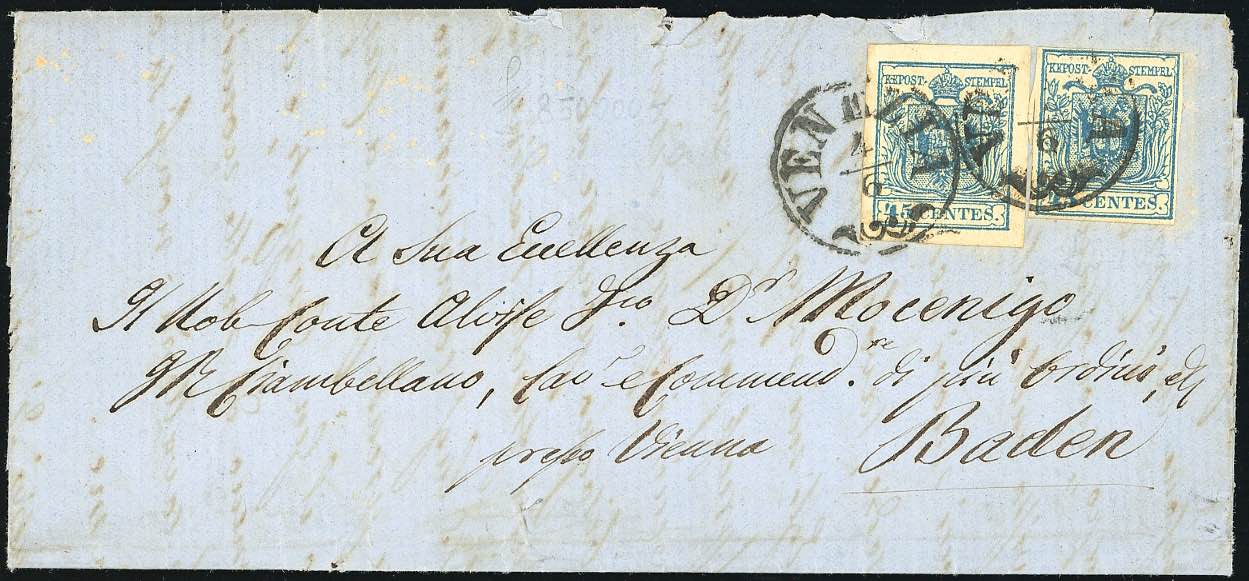 KKPOST-STEMPEL
45 CENTES.
KKPOST-STEMPEL
45 CENTES.
VENEZIA
4/6
A Sua Eccellenza
Il Nob Conte Alvise Fro Dr Mocenigo
IR Ciambellano, Cavr e Commendre di più Ordini, etc
presso Vienna Baden